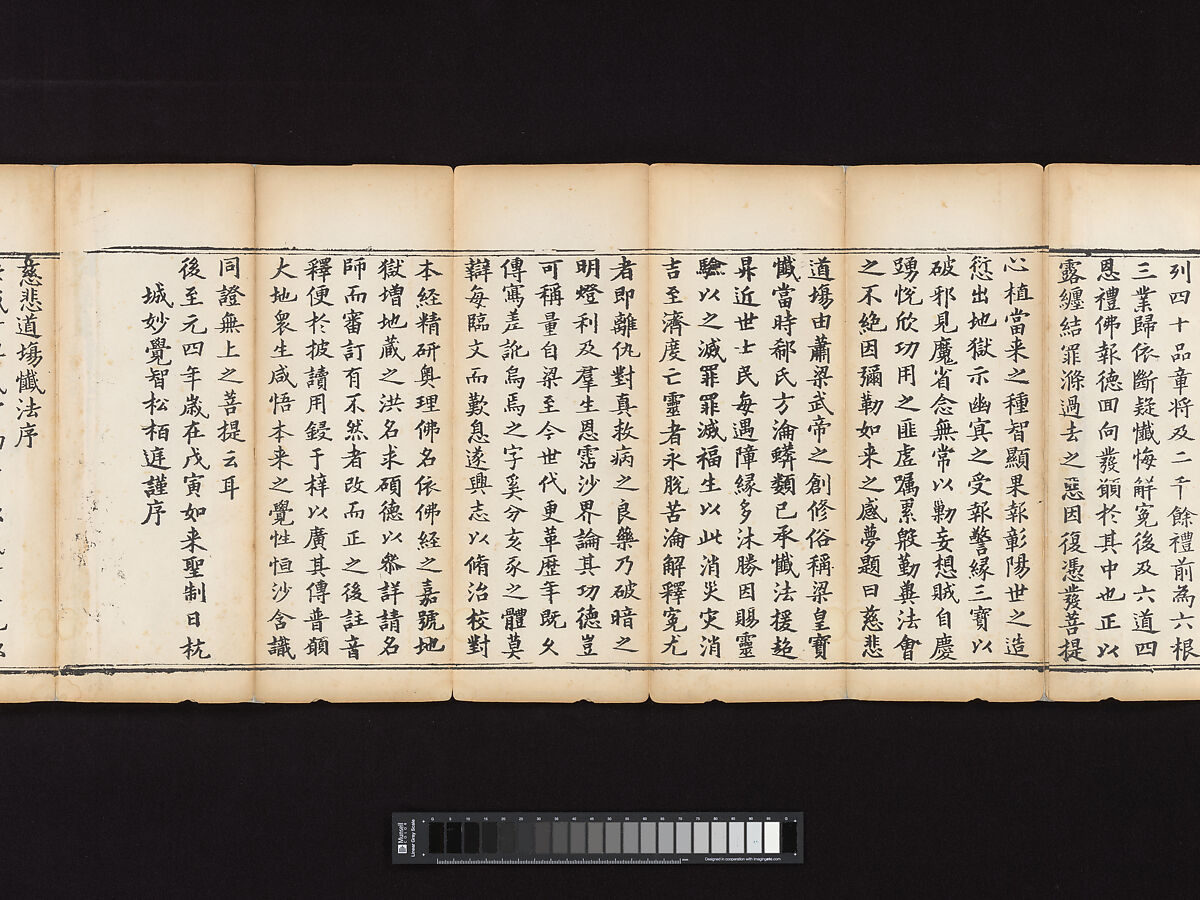 列四十品章将及二千餘禮前為六根
三業歸依斷疑懺悔解寃後及六道四
恩禮佛報德回向發願於其中也正以
露纏結罪滌過去之惡因復憑發菩提
心植當来之種智顯果報彰陽世之造
愆出地獄示幽冥之受報警緣三寶以
破邪見魔省念無常以勦妄想賊自慶
踴悅欣功用之匪虗嘱累慇勤兾法會
之不絶因彌勒如来之感夢題曰慈悲
道塲由蕭梁武帝之創修俗稱梁皇寶
懺當時郗氏方淪鱗類已承懺法援超
昇近世士民每遇障緣多沐勝因賜靈
驗以之滅罪罪滅福生以此消災灾消
吉至濟度亡靈者永脫苦淪解釋寃尤
者即離仇對真救病之良藥乃破暗之
明燈利及羣生恩霑沙界論其功德豈
可稱量自梁至今世代更革歷年既久
傳寫差訛烏焉之字奚分亥豕之體莫
辯每臨文而歎息遂興志以脩治校對
本經精研奥理佛名依佛經之嘉號地
獄增地蔵之洪名求碩德以叅詳請名
師而審訂有不然者改而正之後註音
釋便於披讀用鋟于梓以廣其傳普願
大地衆生咸悟本来之覺性恒沙含識
同證無上之菩提云耳
後至元四年歲在戊寅如来聖制日杭
城妙覺智松栢庭謹序
慈悲道塲懺法序